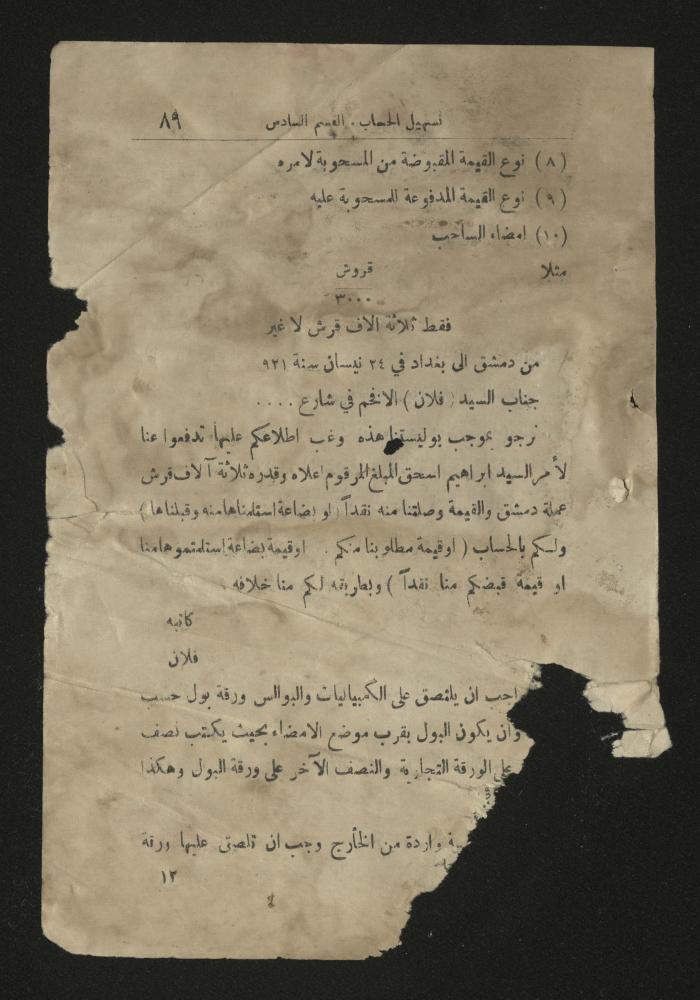 تسهيل الحساب . القسم السادس ٨٩
(٨) نوع القيمة المقبوضة من المسحوبة لامره
(٩) نوع القيمة المدفوعة للمسحوبة عليه
(١٠) امضاء الساحب
مثلا قروش
٣٠٠٠
فقط ثلاثة الاف قرش لا غير
من دمشق الى بغداد في ٢٤ نيسان سنة ٩٢١
جناب السيد (فلان) الافخم في شارع ....
نرجو بموجب بوليستنا هذه وغب اطلاعكم عليها تدفعوا عنا
لأمر السيد ابراهيم اسحق المبلغ المرقوم اعلاه وقدره ثلاثة آلاف قرش
عملة دمشق والقيمة وصلتنا منه نقداً (او بضاعة استلمناها منه وقبلناها)
ولكم بالحساب (او قيمة مطلوبنا منكم . او قيمة بضاعة استلمتموها منا
او قيمة قبضكم منا نقداً) وبطريقه لكم منا خلافه .
كاتبه
فلان
ان يلتصق على الكمبيالات والبوالس ورقة بول حسب
وان يكون البول بقرب موضع الامضاء بحيث يكتب نصف
على الورقة التجارية والنصف الآخر على ورقة البول وهكذا
واردة من الخارج وجب ان تلصق عليها ورقة
١٢